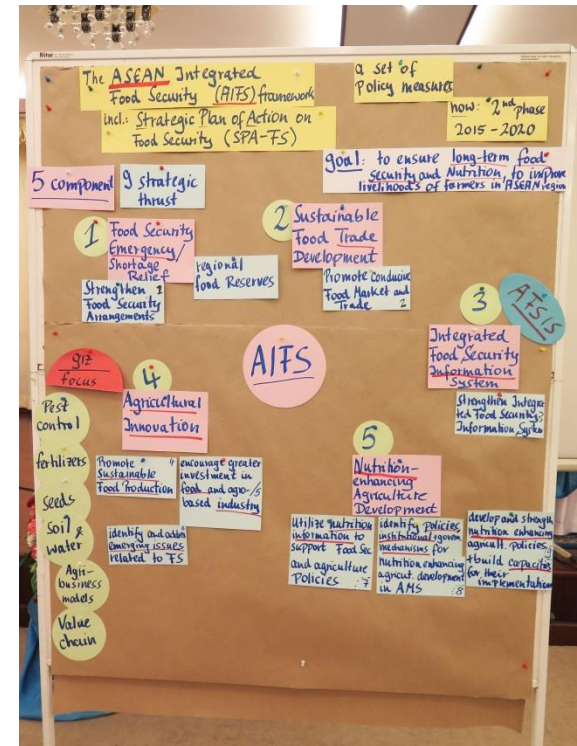 Nitor
The ASEAN Integrated
Food Security (AIFS) framework
incl.: Strategic Plan of Action on
Food Security (SPA-FS)
a set of
Policy measures
now: 2nd phase
2015-2020
goal: to ensure long-term food
security and Nutrition, to improve
livelihoods of farmers in ASEAN region
5 component
9 strategic
thrust
1
Food Security
Emergency/
Shortage
Relief
Strengthen 1
Food Security
Arrangements
regional
food Reserves
2
Sustainable
Food Trade
Development
Promote conducive
Food Market and
Trade 2
3
AFSIS
Integrated
Food Security
Information
System
Strengthen Integra
ted Food Security
Information System
AIFS
giz
focus
Pest
control
fertilizers
seeds
soil &
water
Agri-
business
models
Value
chain
4
Agricultural
Innovation
Promote 4
Sustainable
Food Production
encourage greater
investment in
food and agro- 5
based industry
identify and address
emerging issues
related to FS
5
Nutrition-
enhancing
Agriculture
Development
Utilize nutrition
information to
support Food Sec
and agriculture
Policies :7
identify policies,
institutional + govern
mechanisms for
nutrition enhancing
agricult. development
in AMS :8
develop and strength
nutrition enhancing
agricult. policies, 9
+ build capacities
for their
implementation